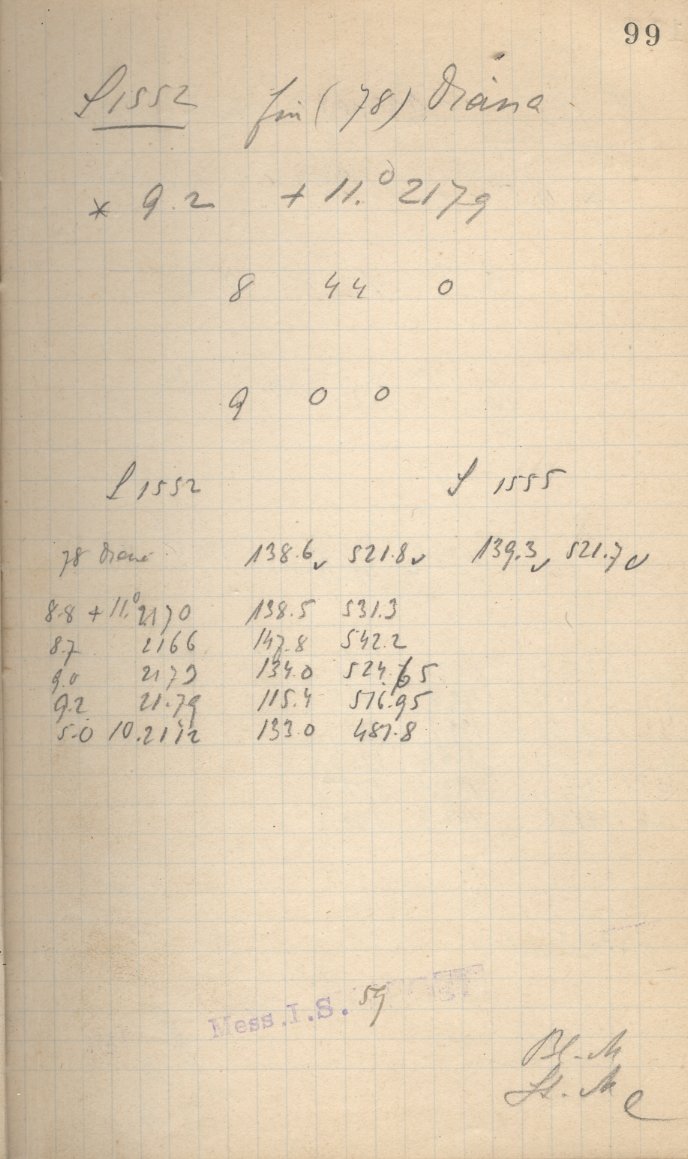 99
S 1552 für (78) Diana
* 9.2 + 11.° 2179
8 44 0
9 0 0
S 1552 S 1555
78 Diana 138.6 521.8 139.3 521.7
8.8 + 11.° 2170 138.5 531.3
8.7 2166 147.8 542.2
9.0 2173 134.0 524.65
9.2 21.79 115.4 516.95
5.0 10. 133.0 487.8
Mess. I. S. 59
Bl. M
St. M